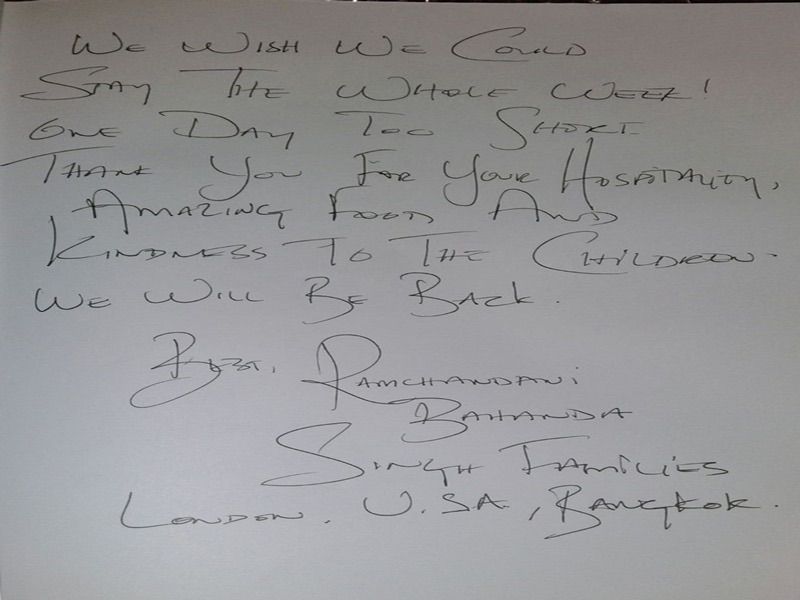 We Wish We Could
Stay The Whole Week!
One Day Too Short.
Thank You For Your Hospitality,
Amazing Food And
Kindness To The Children.
We Will Be Back.
Best, Ramchandani
Bahanda
Singh Families
London, U.S.A., Bangkok.